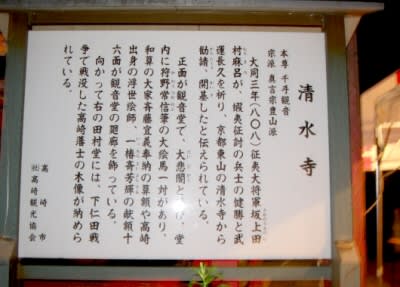 清水寺
本尊 千手観音
宗派 真言宗豊山派
大同三年(八〇八)征夷大将軍坂上田
村麻呂が、蝦夷征討の兵士の健勝と武
運長久を祈り、京都東山の清水寺から
勧請、開基したと伝えられている。
正面が観音堂で、大悲閣と
堂
内に狩野常信筆の大絵馬一対があり、
和算の大家斉藤宜義奉納の算額や高崎
出身の浮世絵師、一椿斎芳輝の献額十
六面が観音堂の廻廊を飾っている。
向かって右の田村堂には、下仁田戦
争で戦没した高崎藩士の木像が納めら
れている。
高崎市
(社)高崎観光協会